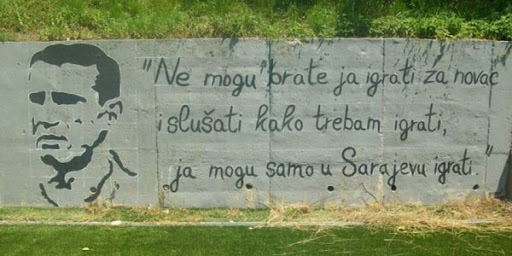 "Ne mogu brate ja igrati za novac
i slušati kako trebam igrati,
ja mogu samo u Sarajevu igrati."